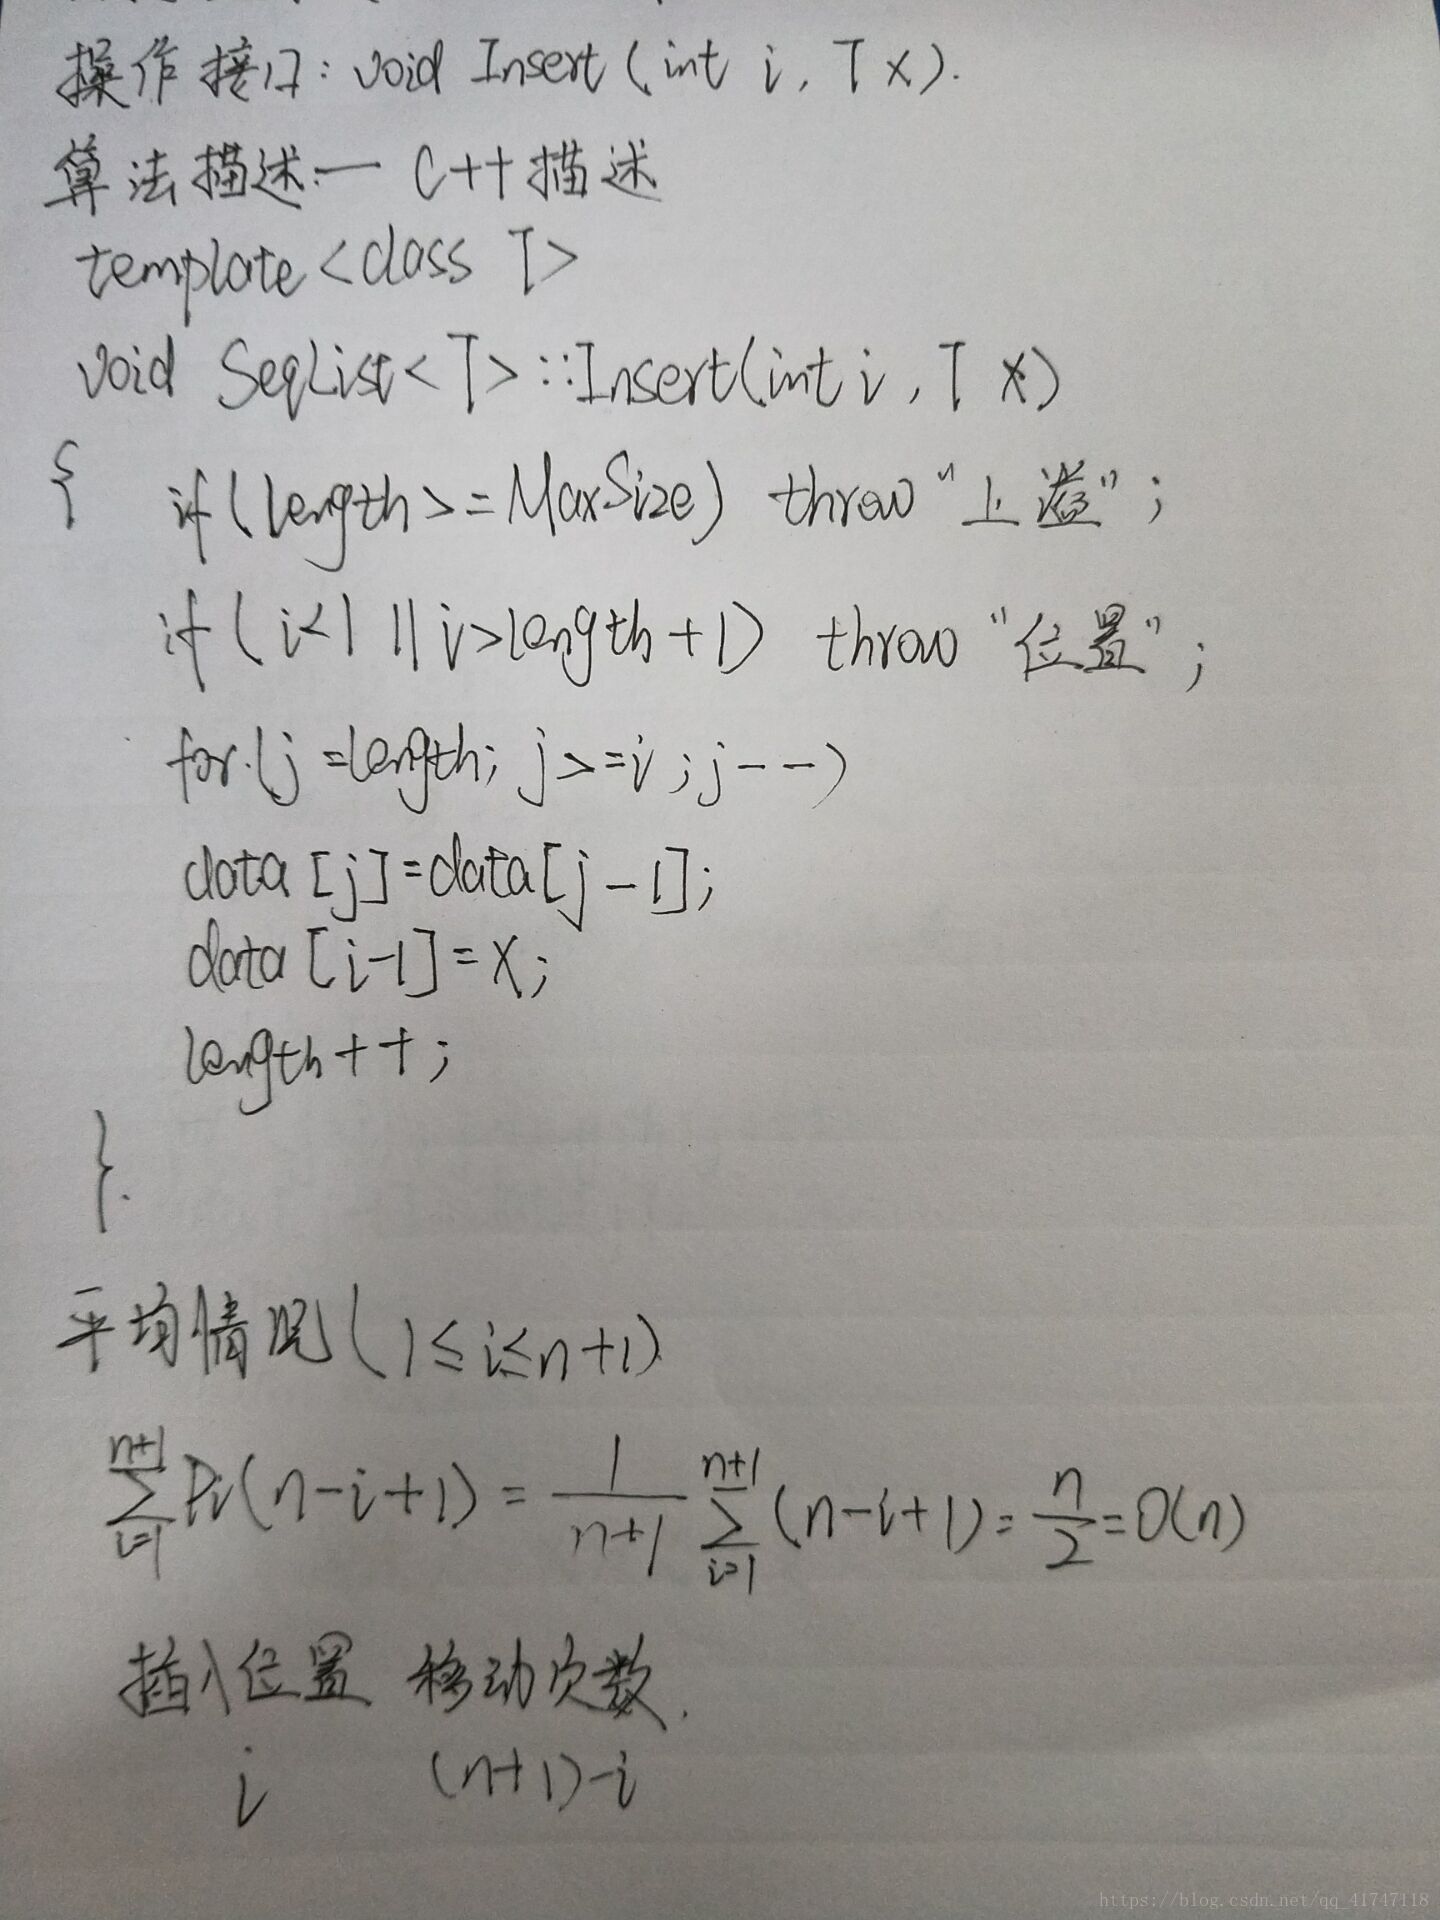 操作接口: void Insert (int i, T x).
算法描述:— C++描述
template<class T>
void SeqList<T>::Insert(int i, T x)
{ if(length>=MaxSize) throw "上溢";
if(i<1 || i>length+1) throw "位置";
for(j=length; j>=i; j--)
data[j]=data[j-1];
data[i-1]=x;
length++;
}.
平均情况(1≤i≤n+1)
\sum_{i=1}^{n+1} Pi(n-i+1) = \frac{1}{n+1} \sum_{i=1}^{n+1} (n-i+1) = \frac{n}{2} = O(n)
插入位置 移动次数.
i (n+1)-i
https://blog.csdn.net/qq_41747118